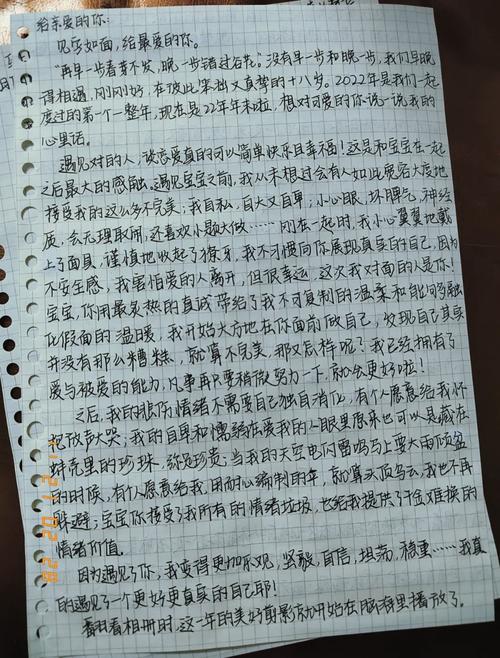 给亲爱的你:
见字如面,给最爱的你。
“再早一步着芽不发,晚一步错过谷花。”没有早一步和晚一步,我们早晚
得相遇,刚刚好,在彼此笨拙又真挚的十八岁。2022年是我们一起
度过的第一个一整年,现在是22年年末啦,想对可爱的你说一说我的
心里话。
遇见对的人,谈恋爱真的可以简单快乐且幸福!这是和宝宝在一起
之后最大的感触。遇见宝宝之前,我从未想过会有人如此宽容大度地
接受我的这么多不完美,我自私,自大又自卑;小心眼,坏脾气,神经
质,会无理取闹,还喜欢小题大做……刚在一起时,我小心翼翼地戴
上了面具,谨慎地收起了獠牙,我不习惯向你展现真实的自己,因为
不安全感,我害怕爱的人离开,但很幸运,这次我对面的人是你!
宝宝,你用最炙热的真诚带给了我不可复制的温柔和能够融
化假面的温暖,我开始大方地在你面前做自己,发现自己其实
并没有那么糟糕,就算不完美,那又怎样呢?我已经拥有了
爱与被爱的能力,凡事再只要稍微努力一下,就会更好啦!
之后,我的悲伤情绪不需要自己独自消化,有个人愿意给我怀
抱放声大哭;我的自卑和懦弱在爱我的人眼里原来也可以是藏在
蚌壳里的珍珠,弥足珍贵;当我的天空电闪雷鸣马上要大雨倾盆
的时候,有个人愿意给我用耐心编制的伞,就算头顶乌云,我也不再
躲避;宝宝你接受了我所有的情绪垃圾,也给我提供了千金难换的
情绪价值。
因为遇见了你,我变得更加乐观,坚毅,自信,坦荡,稳重……我真
的遇见了一个更好更真实的自己耶!
翻看相册时,这一年的美好剪影就开始在脑海里播放了。